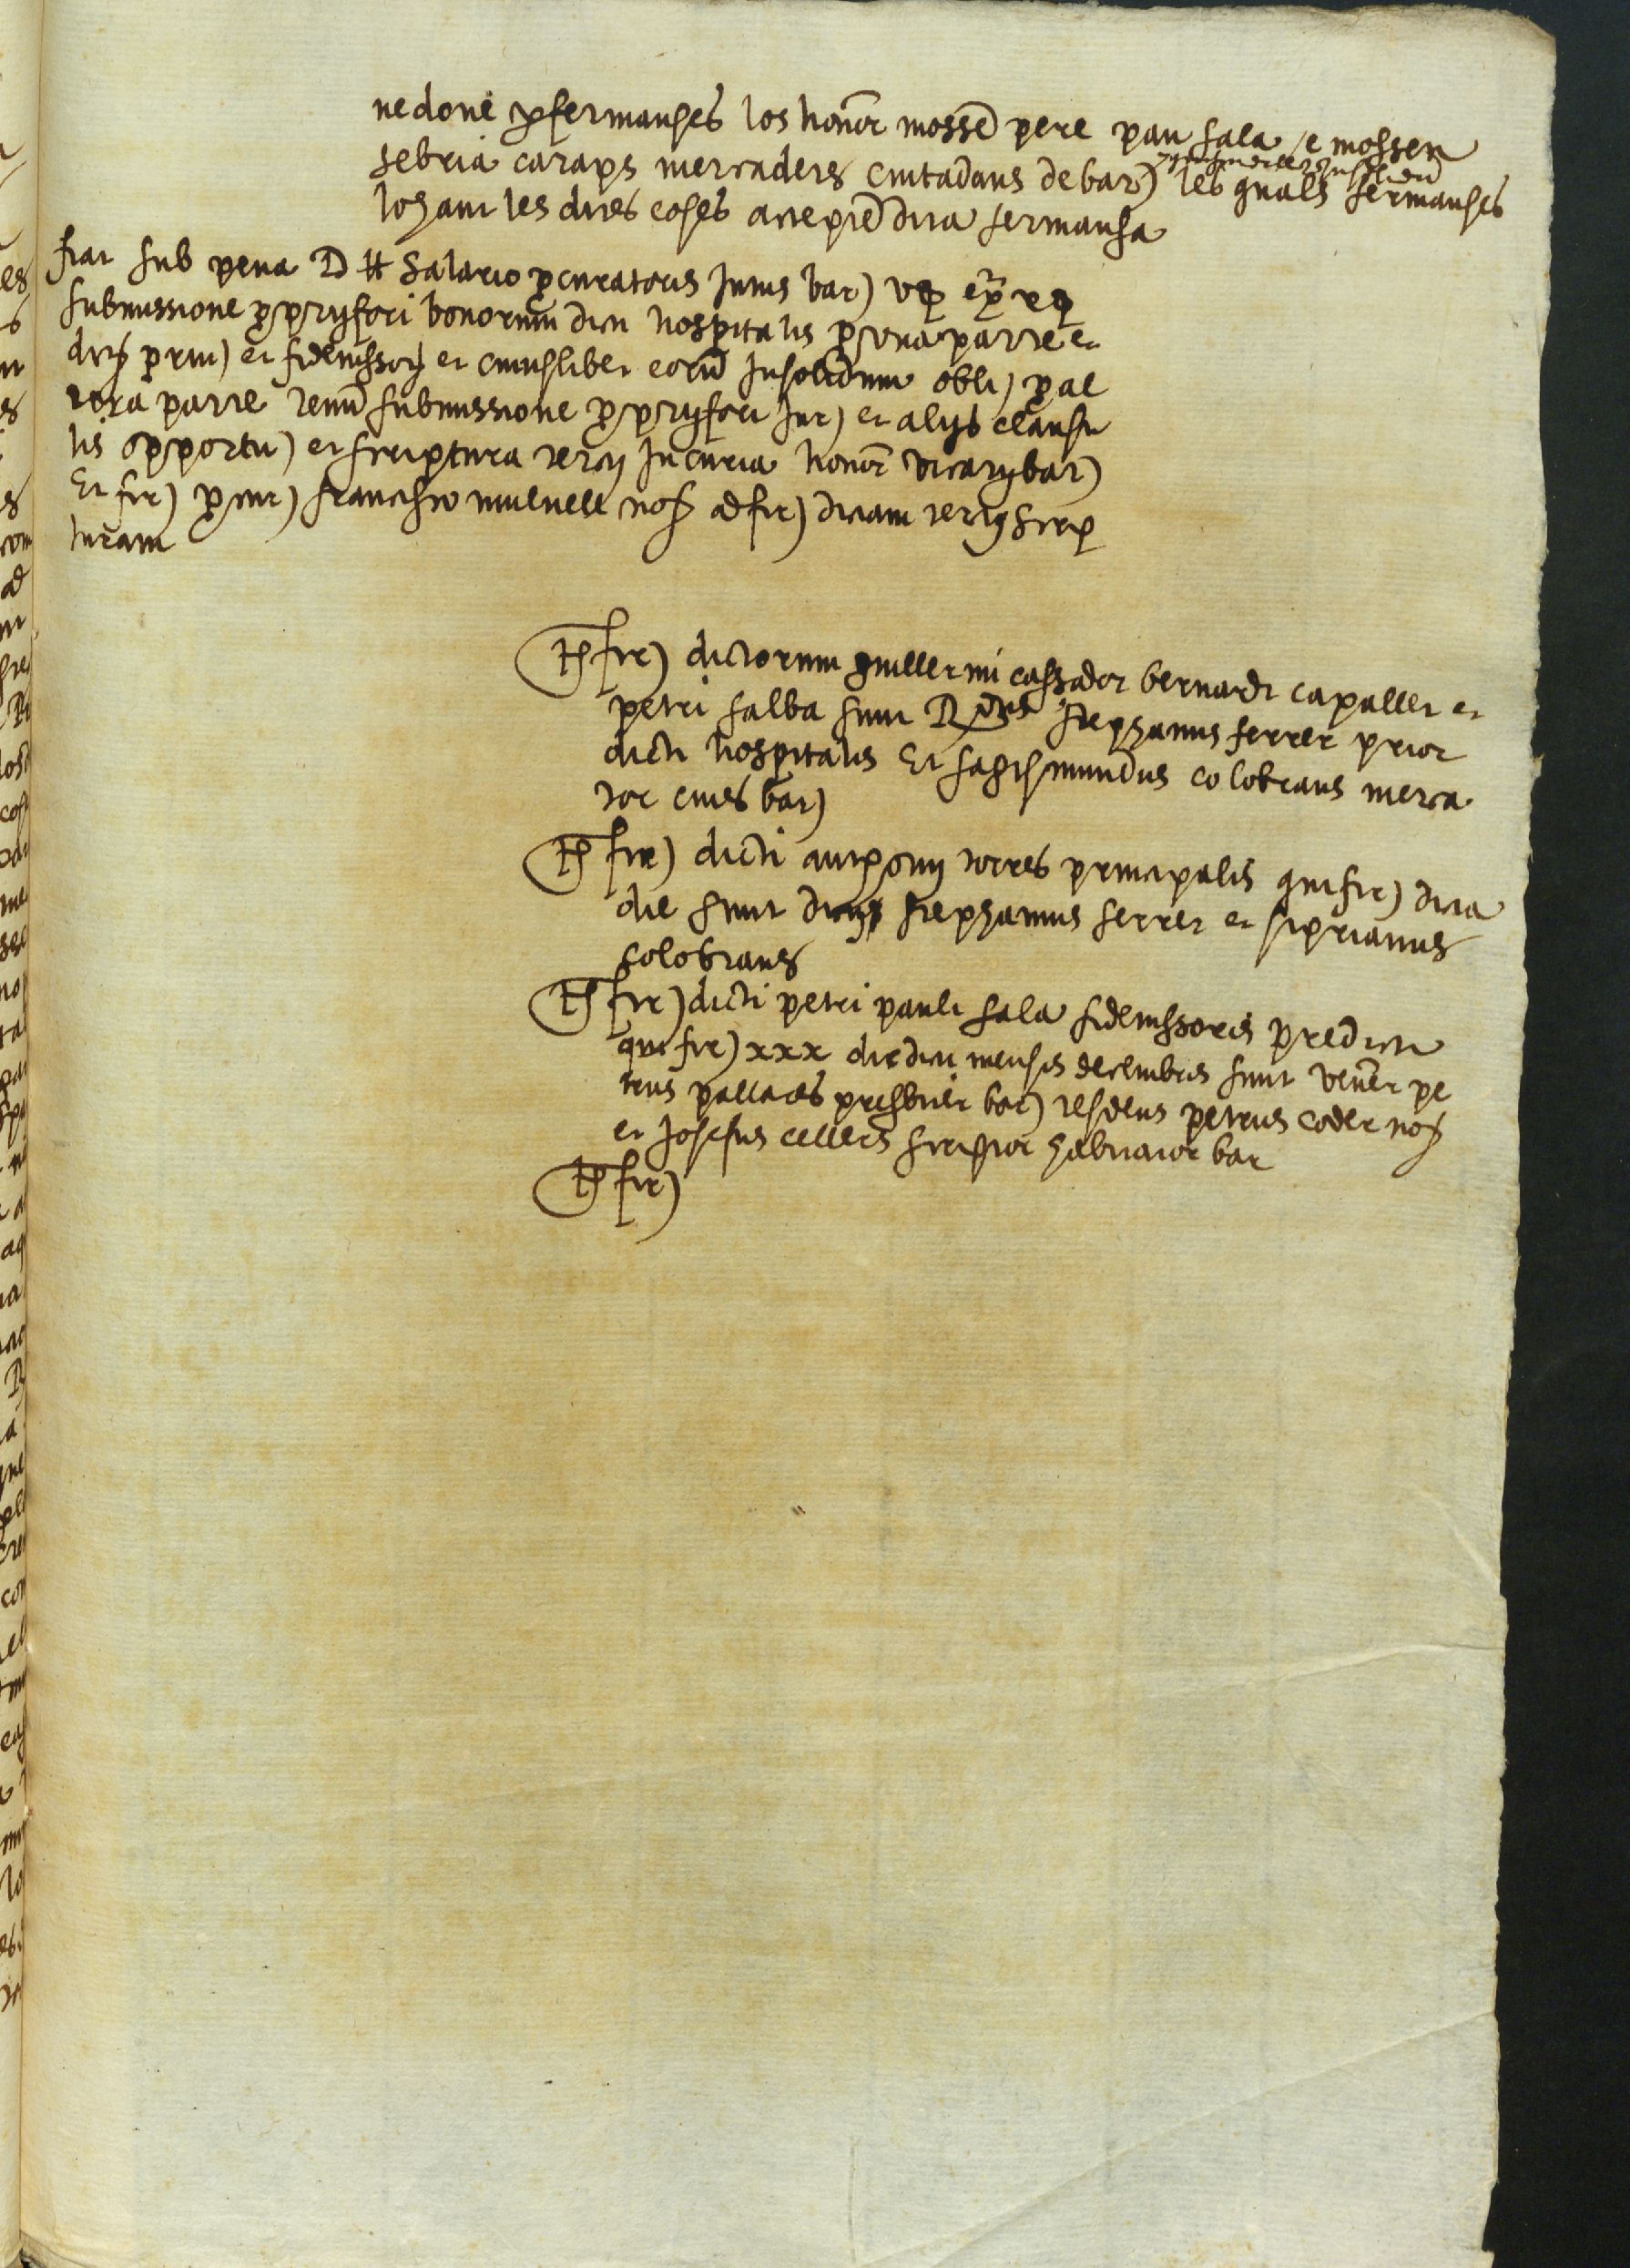 ne done p fermanses los honor mosse pere pau sala e mossen
sebria caraps mercaders ciutadans de bar) les quals fermanses
lohant les dites coses accepte dita fermansa
fiat sub pena D # salario pcuratoris intus bar)
submissione pprij fori bonorum dicti hospitalis p una parte et
prin) et fideiussor et cuiuslibet eoru insolidum obli) p al
tera parte renu submissione pprij fori jur) et alijs clausu
lis opportu) et scriptura tercij in curia honor vicarij bar)
Et fir) pcur) francisco mulnell not ad fir) dictam tercij scrip
turam
Ts fir) dictorum guillermi cassador bernardi capaller et
petri salba sunt Rdus stephanus ferrer prior
dicti hospitalis Et sagismundus colobrans merca
tor cives bar)
Ts fir) dicti anthonij torres principalis qui fir) dicta
die sunt dicti stephanus ferrer et siprianus
colobrans
Ts fir) dicti petri pauli sala fideiussoris predicti
qui fir) xxx die dicti mensis decembris sunt vener pe
trus pallares presbiter bar) residens petrus coder not
et josefus cellers scriptor habitator bar
Ts fir)